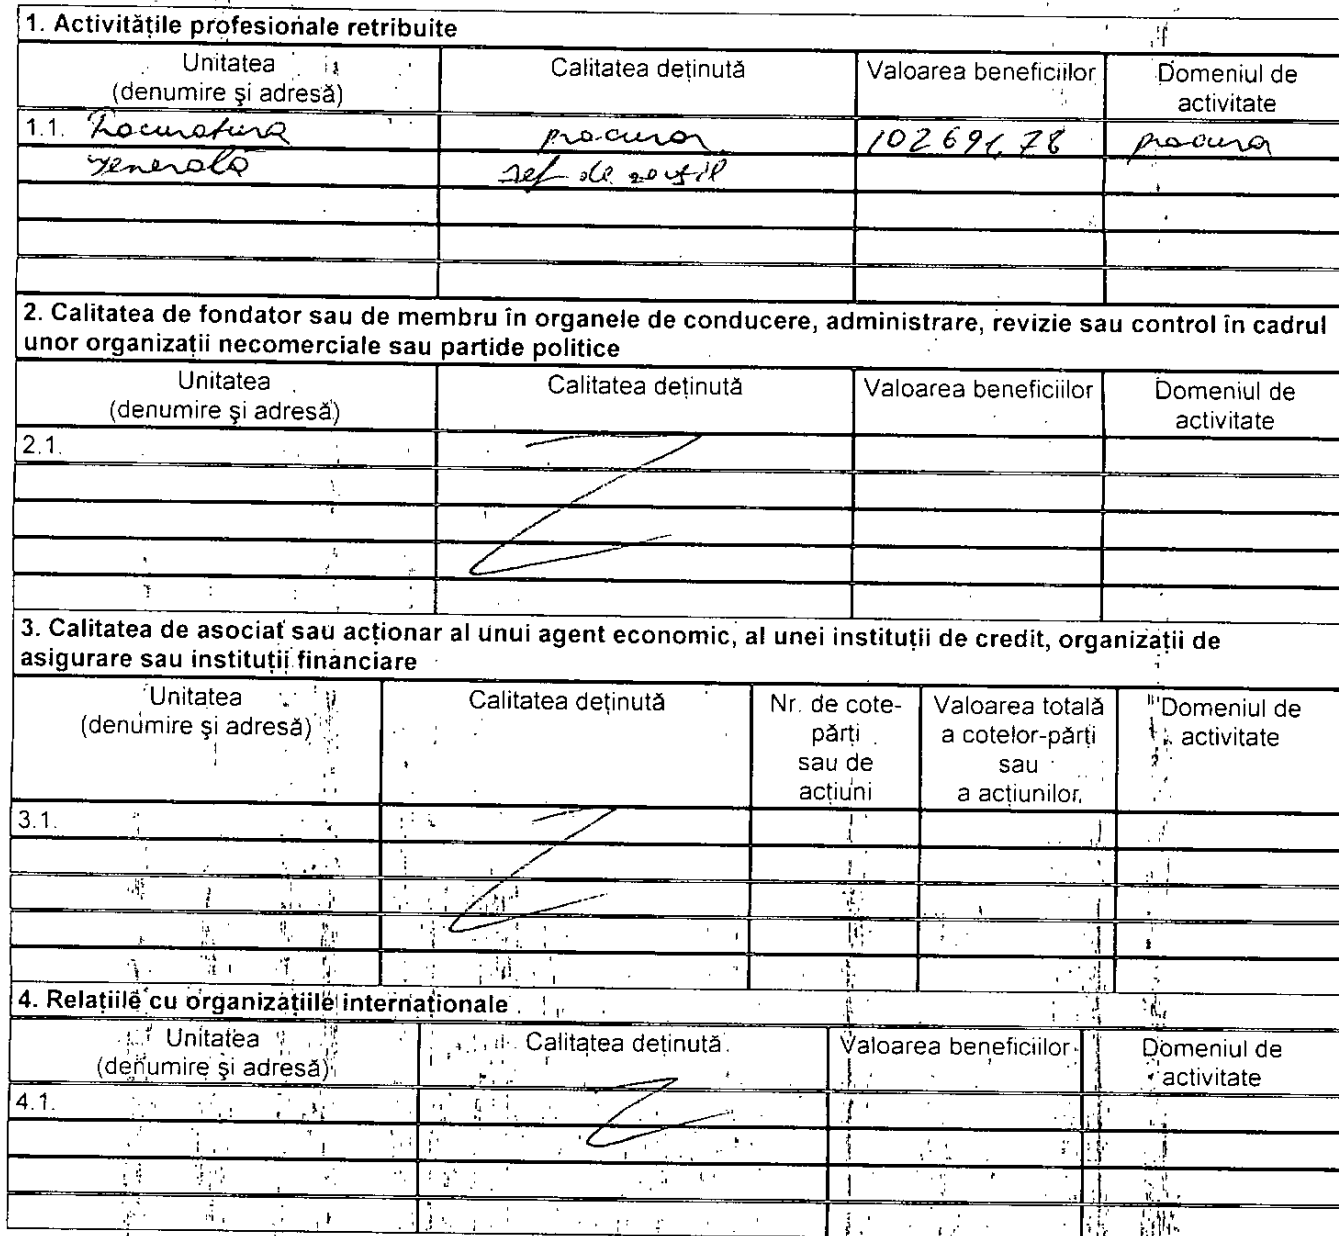 1. Activitățile profesionale retribuite
Unitatea
(denumire și adresă)
Calitatea deținută
Valoarea beneficiilor
Domeniul de
activitate
1.1. Procuratura procuror 102691,78 procuror
Generală șef de secție
2. Calitatea de fondator sau de membru în organele de conducere, administrare, revizie sau control în cadrul
unor organizații necomerciale sau partide politice
Unitatea
(denumire și adresă)
Calitatea deținută
Valoarea beneficiilor
Domeniul de
activitate
2.1.
3. Calitatea de asociat sau acționar al unui agent economic, al unei instituții de credit, organizații de
asigurare sau instituții financiare
Unitatea
(denumire și adresă)
Calitatea deținută
Nr. de cote-
părți
sau de
acțiuni
Valoarea totală
a cotelor-părți
sau
a acțiunilor
Domeniul de
activitate
3.1.
4. Relațiile cu organizațiile internaționale
Unitatea
(denumire și adresă)
Calitatea deținută
Valoarea beneficiilor
Domeniul de
activitate
4.1.